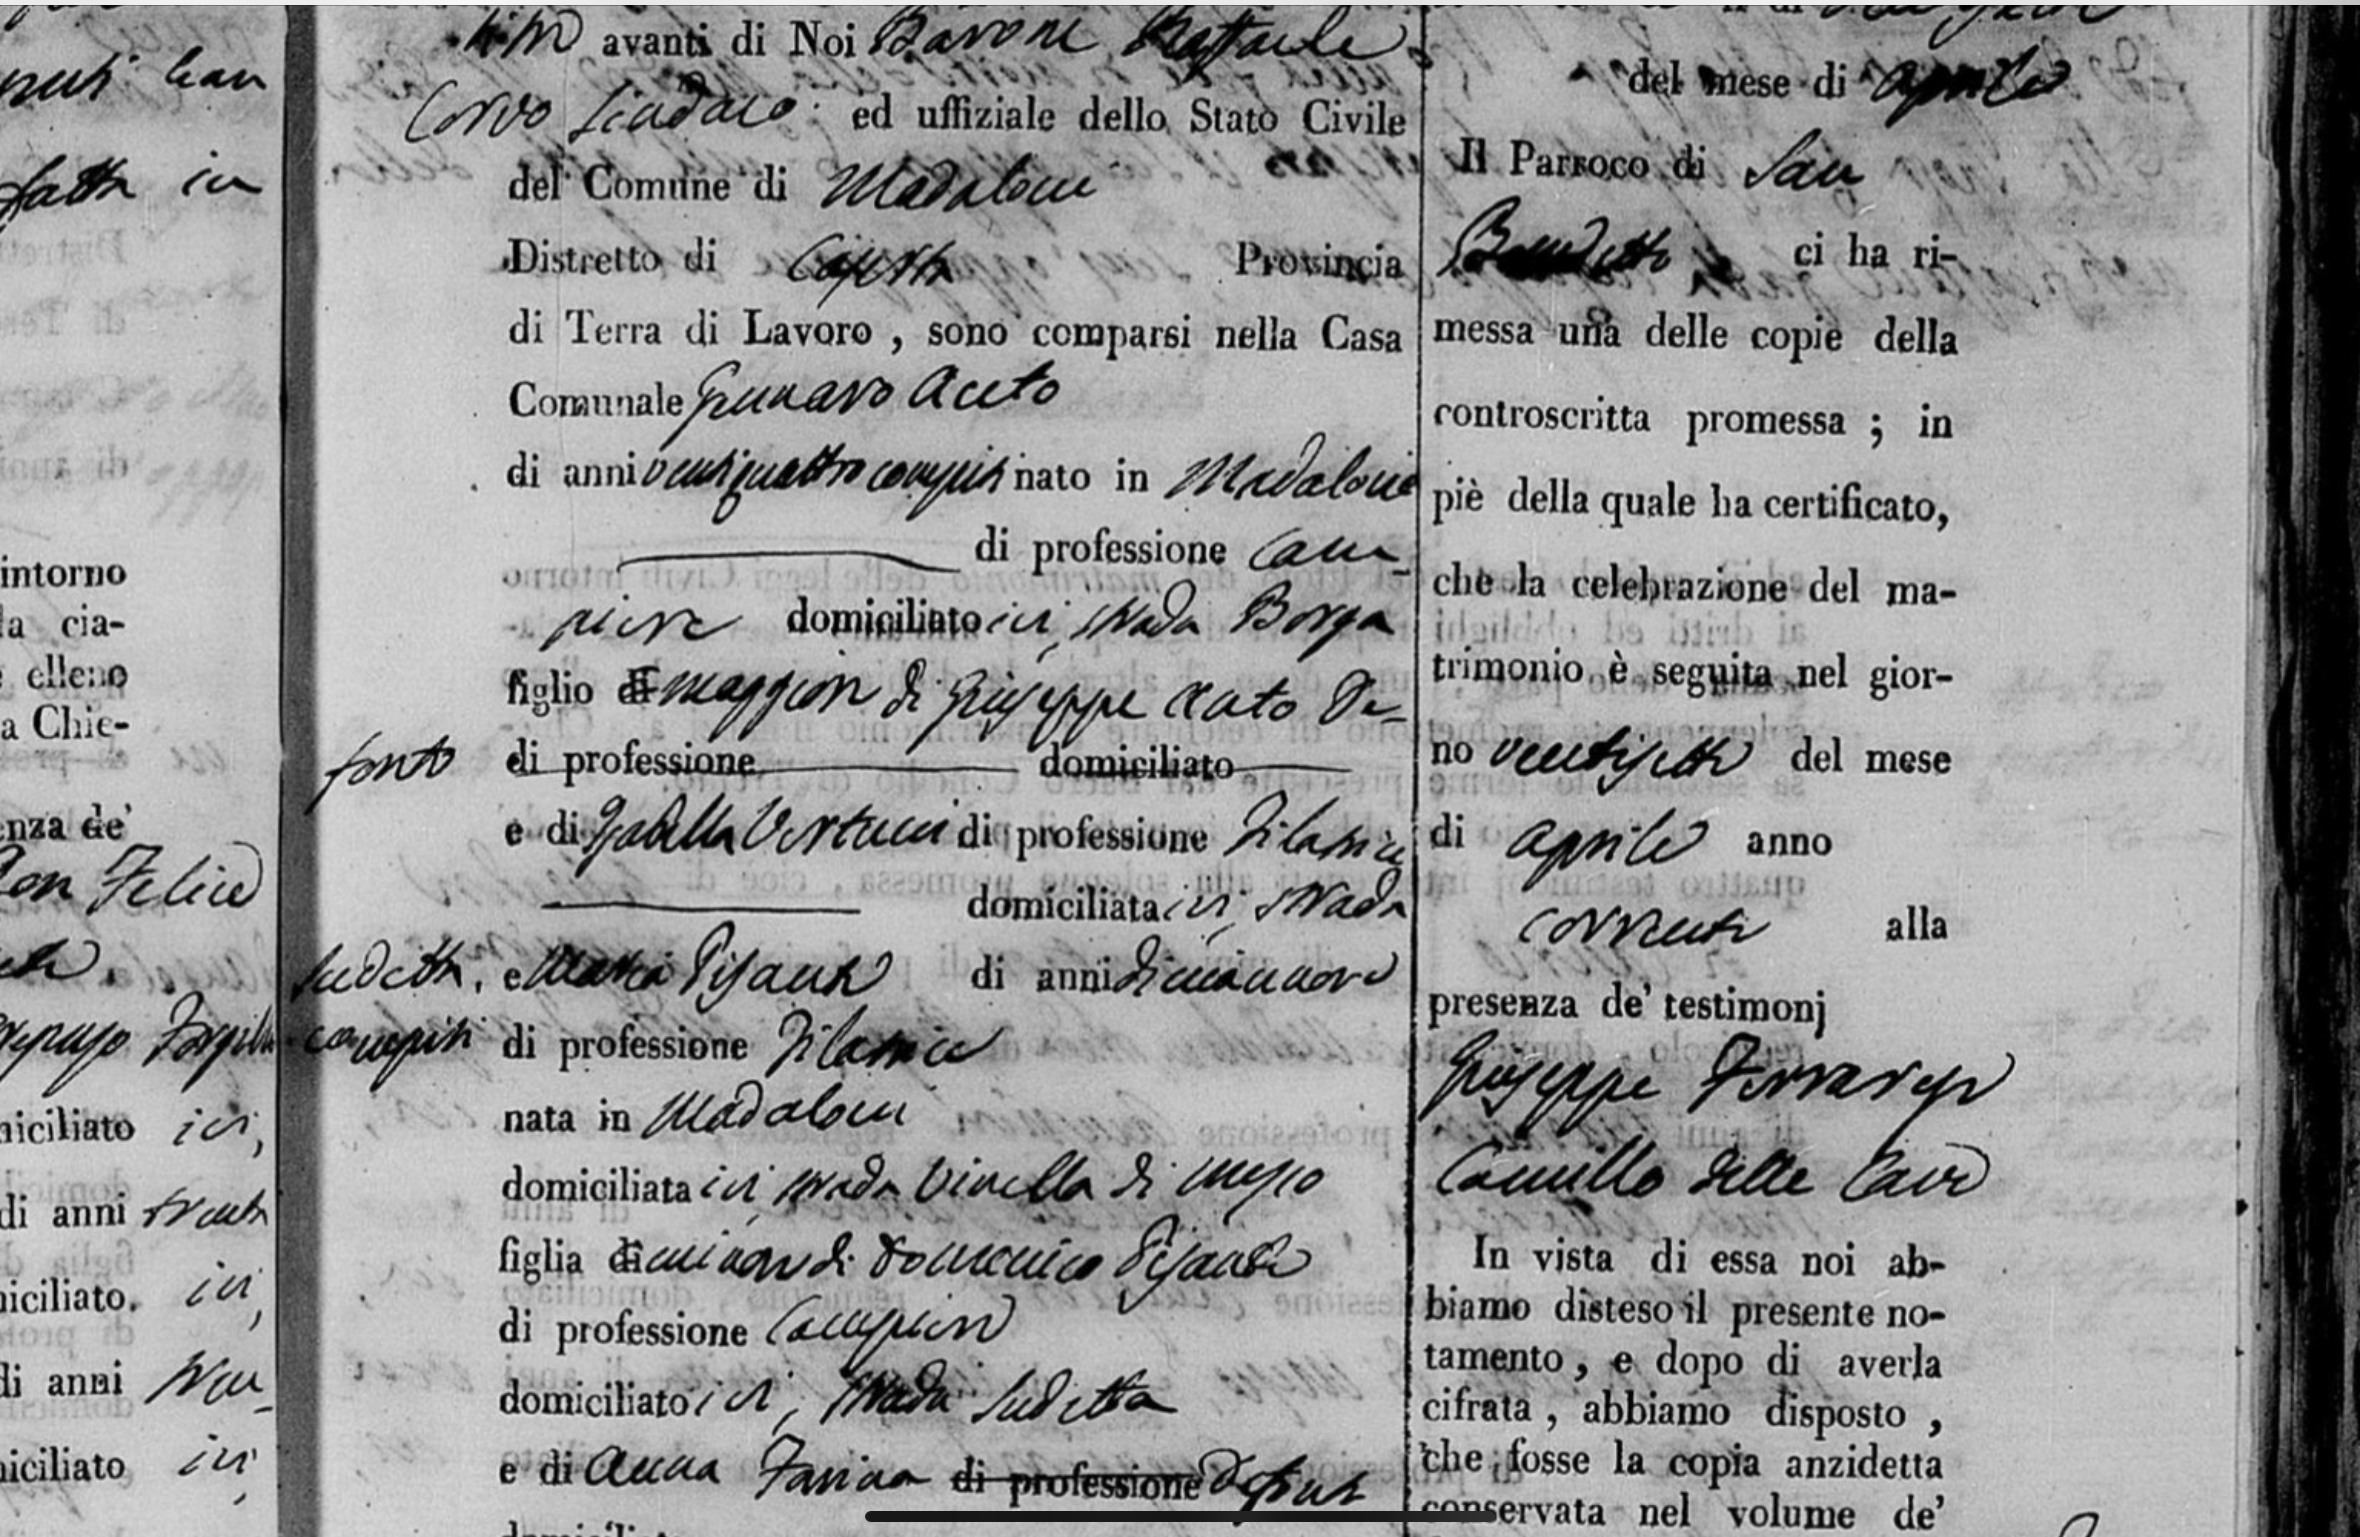 nuti han
fatta in
intorno
la cia-
elleno
a Chie-
enza de'
Don Felice
miciliato ivi,
di anni trenta
miciliato. ivi,
di anni tren-
miciliato ivi,
avanti di Noi Barone Raffaele
Corvo Sindaco ed uffiziale dello Stato Civile
del Comune di Madaloni
Distretto di Caserta Provincia
di Terra di Lavoro , sono comparsi nella Casa
Comunale Gennaro Aceto
di anni ventiquattro compiti nato in Madaloni
di professione Cam-
piere domiciliato ivi, strada Borga
figlio di maggiore di Giuseppe Aceto De-
fonto di professione domiciliato
e di Isabella Vertucci di professione Filatrice
domiciliata ivi, strada
sudetta, e Maria Pisanti di anni diecinnove
compiti di professione Filatrice
nata in Madaloni
domiciliata ivi, strada Vinella di mezzo
figlia di minore di Domenico Pisanti
di professione Campiere
domiciliato ivi, strada sudetta
e di Anna Farina di professione Defunta
del mese di aprile
Il Parroco di San
Benedetto ci ha ri-
messa una delle copie della
controscritta promessa ; in
piè della quale ha certificato,
che la celebrazione del ma-
trimonio è seguita nel gior-
no ventisette del mese
di aprile anno
corrente alla
presenza de' testimonj
Giuseppe Ferrarese
Camillo delle Cave
In vista di essa noi ab-
biamo disteso il presente no-
tamento , e dopo di averla
cifrata , abbiamo disposto ,
che fosse la copia anzidetta
conservata nel volume de'